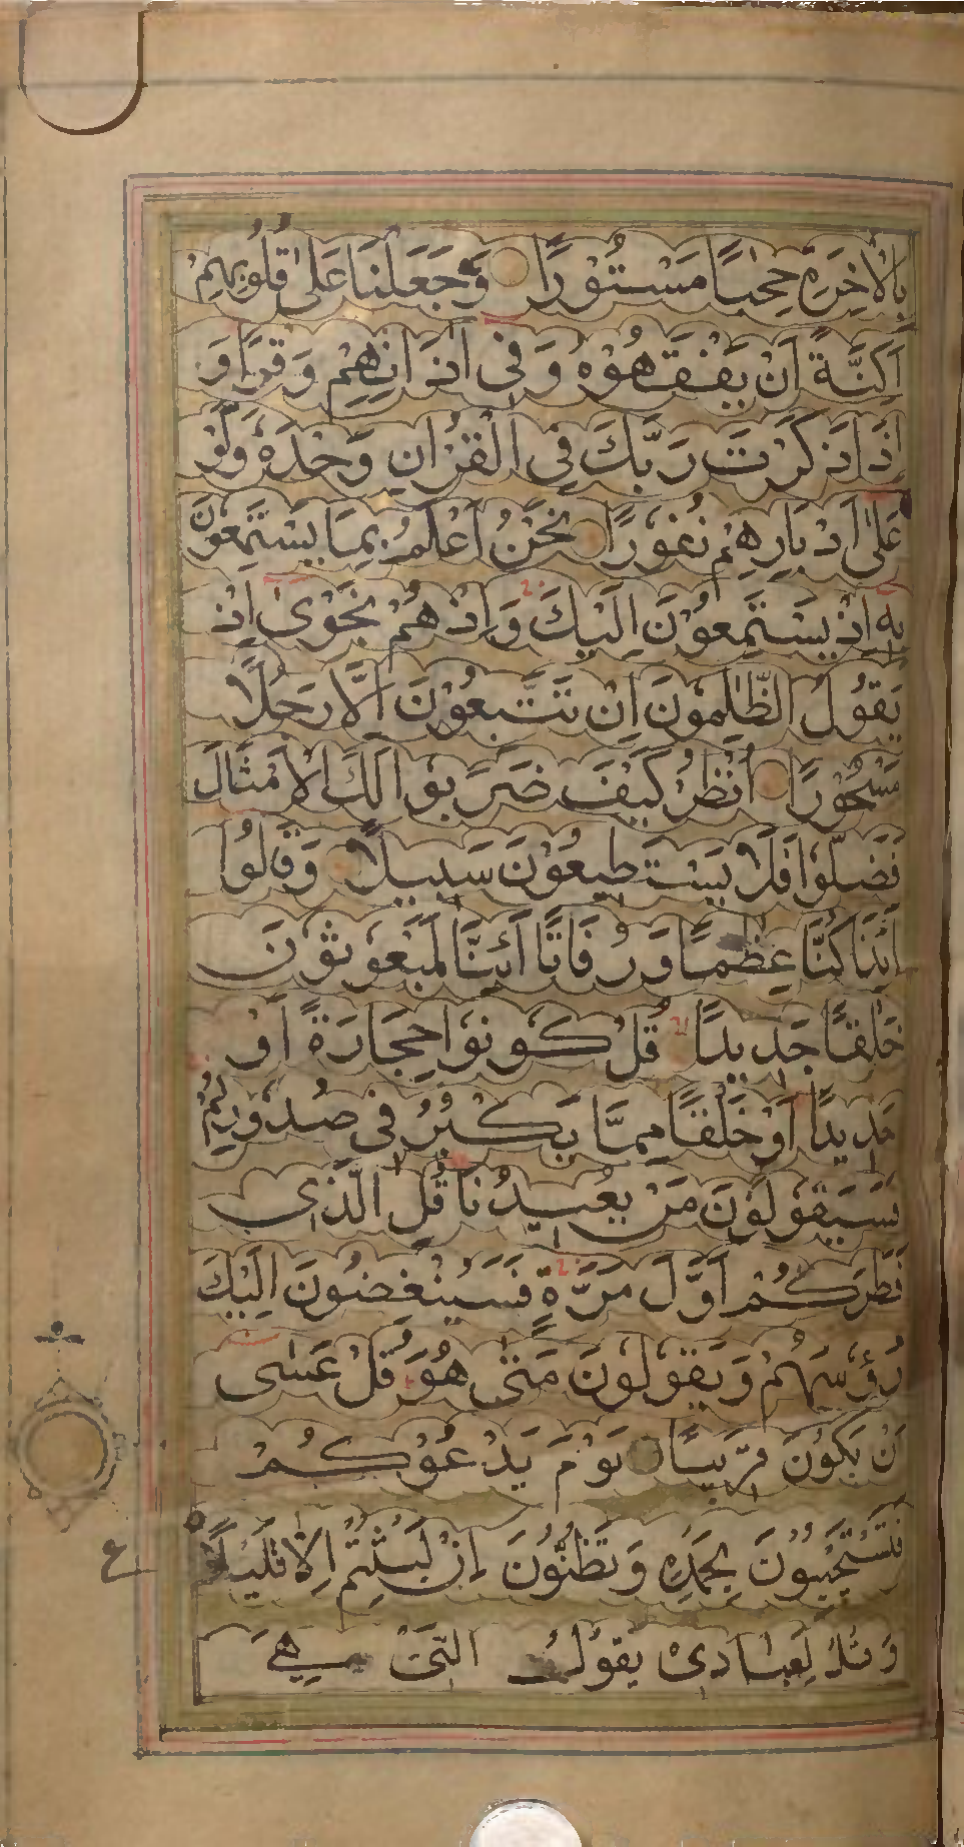 بِالْاٰخِرَةِ حِجَابًا مَسْتُوْرًا وَجَعَلْنَا عَلٰى قُلُوْبِهِمْ
اَكِنَّةً اَنْ يَفْقَهُوْهُ وَفِى اٰذَانِهِمْ وَقْرًا وَ
اِذَا ذَكَرْتَ رَبَّكَ فِى الْقُرْاٰنِ وَحْدَهٗ وَلَّوْ
عَلٰى اَدْبَارِهِمْ نُفُوْرًا نَحْنُ اَعْلَمُ بِمَا يَسْتَمِعُوْنَ
بِهٖ اِذْ يَسْتَمِعُوْنَ اِلَيْكَ وَاِذْ هُمْ نَجْوٰى اِذْ
يَقُوْلُ الظّٰلِمُوْنَ اِنْ تَتَّبِعُوْنَ اِلَّا رَجُلًا
مَسْحُوْرًا اُنْظُرْ كَيْفَ ضَرَبُوْا لَكَ الْاَمْثَالَ
فَضَلُّوْا فَلَا يَسْتَطِيعُوْنَ سَبِيْلًا وَقَالُوْا
اَئِذَا كُنَّا عِظٰمًا وَرُفَاتًا اَئِنَّا لَمَبْعُوْثُوْنَ
خَلْقًا جَدِيْدًا قُلْ كُوْنُوْا حِجَارَةً اَوْ
حَدِيْدًا اَوْ خَلْقًا مِمَّا يَكْبُرُ فِى صُدُوْرِكُمْ
فَسَيَقُوْلُوْنَ مَنْ يُعِيْدُنَا قُلِ الَّذِى
فَطَرَكُمْ اَوَّلَ مَرَّةٍ فَسَيُنْغِضُوْنَ اِلَيْكَ
رُؤُسَهُمْ وَيَقُوْلُوْنَ مَتٰى هُوَ قُلْ عَسٰى
اَنْ يَكُوْنَ قَرِيْبًا يَوْمَ يَدْعُوْكُمْ
فَتَسْتَجِيْبُوْنَ بِحَمْدِهٖ وَتَظُنُّوْنَ اِنْ لَبِثْتُمْ اِلَّا قَلِيْلًا
ع
وَقُلْ لِعِبَادِىْ يَقُوْلُوا الَّتِىْ هِىَ